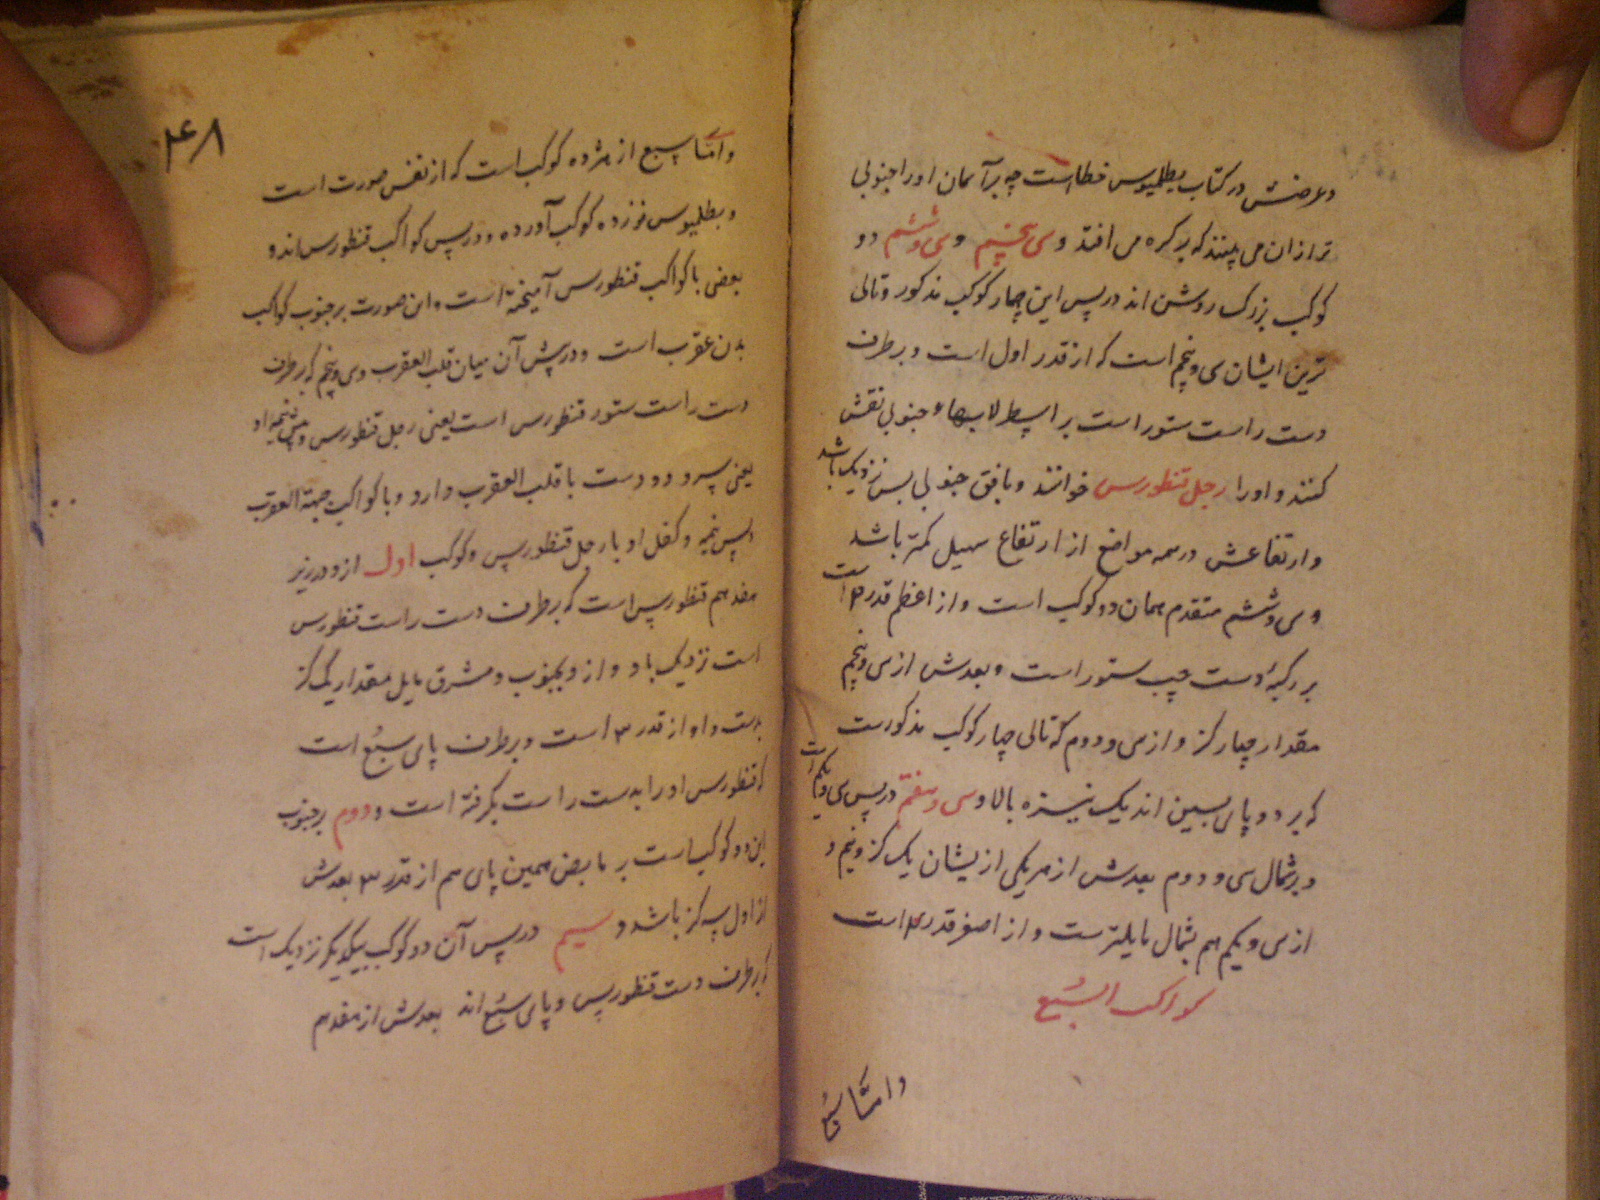 و عرضش در کتاب بطلمیوس خطاست چه بر آسمان او را جنوبی
تر ازان می بینند که بر کره می افتد و سی و پنجم و سی و ششم دو
کوکب بزرگ روشن اند در پس این چهار کوکب مذکور و تالی
ترین ایشان سی و پنجم است که از قدر اول است و بر طرف
دست راست ستور است بر اسطرلابهاء جنوبی نقش
کنند و او را رجل قنطورس خوانند و بافق جنوبی بس نزدیک باشد
و ارتفاعش در همه مواضع از ارتفاع سهیل کمتر باشد
و سی و ششم متقدم همان دو کوکب است و از اعظم قدر ۲ است
بر رکبهٔ دست چپ ستور است و بعدش از سی و پنجم
مقدار چهار گز و از سی و دوم که تالی چهار کوکب مذکورست
که بر دو پای پسین اند یک نیزه بالا و سی و هفتم در پس سی و یکم است
و بر شمال سی و دوم بعدش از هر یکی از یشان یک گز و نیم و
از سی و یکم هم بشمال مایلترست و از اصغر قدر ۴ است
کواکب السبع
و اما سبع
۴۸
و اما سبع از هژده کوکب است که از نفس صورت است
و بطلمیوس نوزده کوکب آورده و در پس کواکب قنطورس اند و
بعضی با کواکب قنطورس آمیخته است و این صورت بر جنوب کواکب
بدن عقرب است و در پیش آن میان قلب العقرب و سی و پنجم که بر طرف
دست راست ستور قنطورس است یعنی رجل قنطورس و پیش نیمه او
یعنی سر و دو دست با قلب العقرب دارد و با کواکب جبهة العقرب
و پس نیمه و کفل او با رجل قنطورس و کوکب اول ازو در زیر
هفدهم قنطورس است که بر طرف دست راست قنطورس
است نزدیک باو و از و بجنوب و مشرق مایل مقدار یک گز
بدست و او از قدر ۳ است و بر طرف پای سبع است
که قنطورس او را بدست راست بگرفته است و دوم بر جنوب
این دو کوکب است بر مابض همین پای هم از قدر ۳ بعدش
از اول سه گز باشد و سیم در پس آن دو کوکب بیکدیگر نزدیک است
که بر طرف دست قنطورس و پای سبع اند بعدش از مقدم